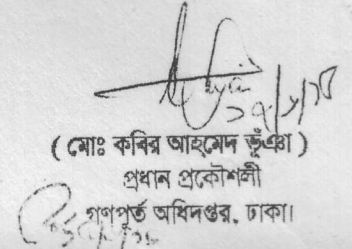 ( মোঃ কবির আহমেদ ভূঁঞা )
প্রধান প্রকৌশলী
গণপূর্ত অধিদপ্তর, ঢাকা।